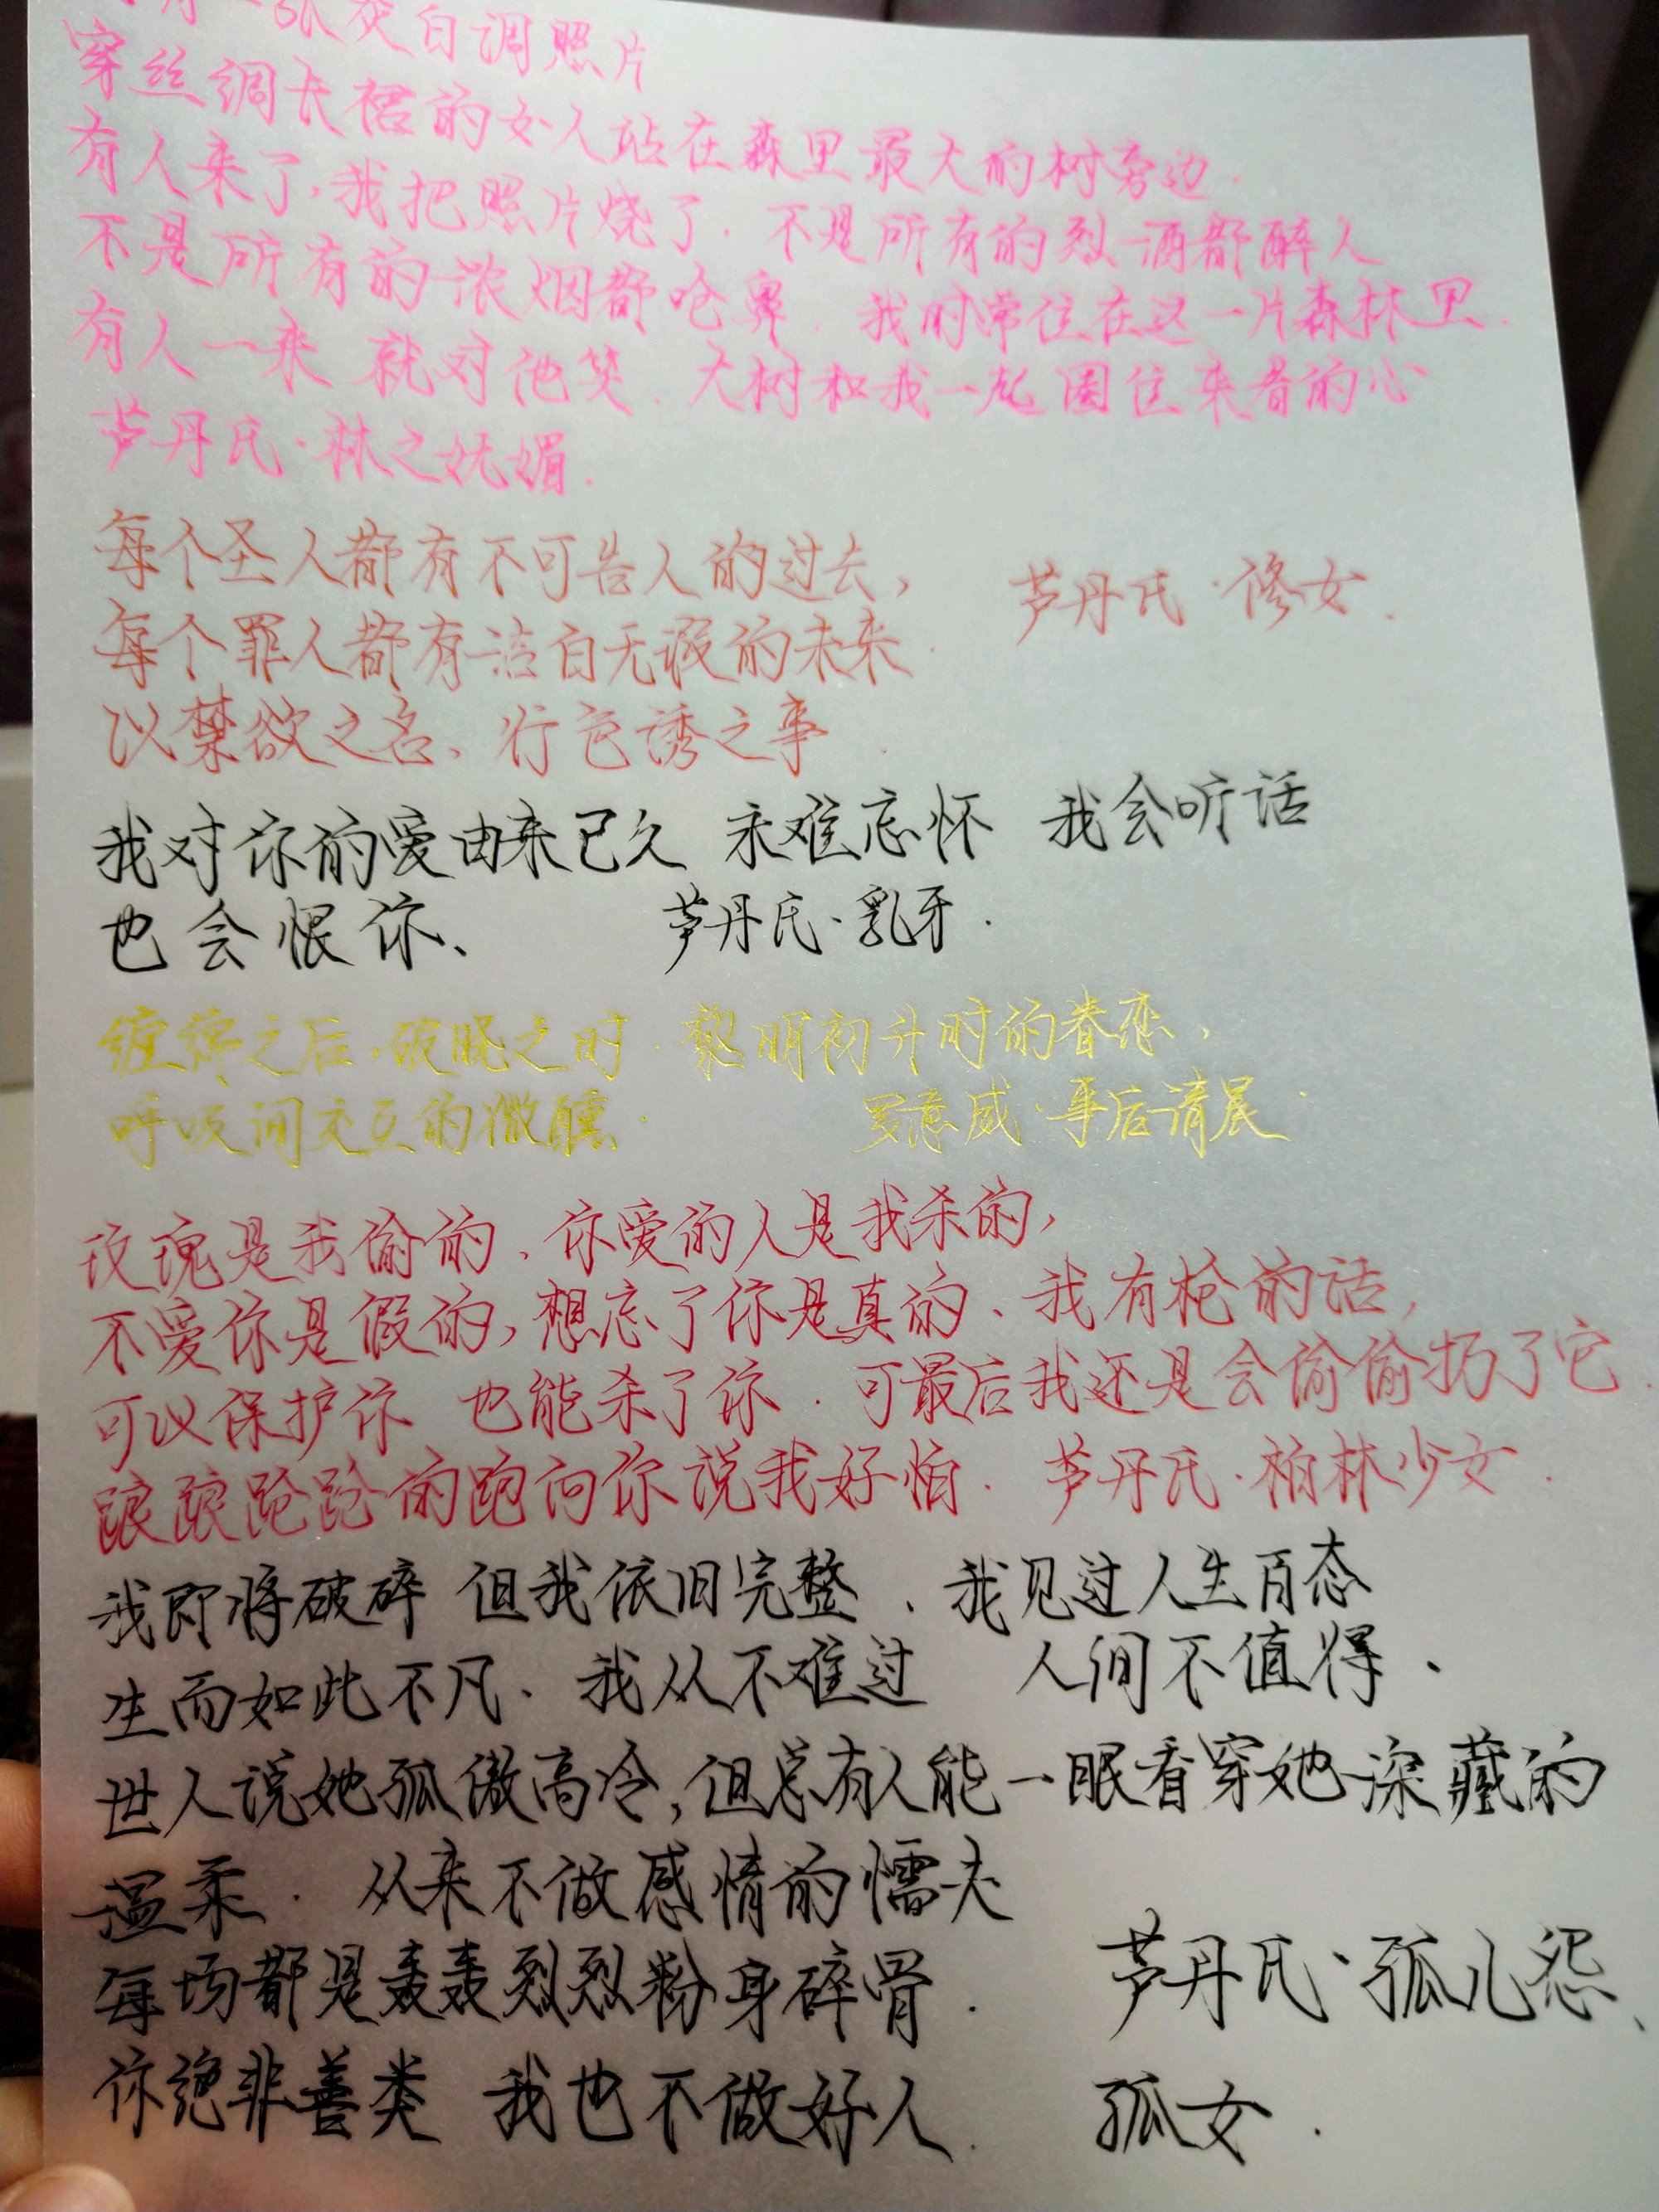 张灰白调照片
穿丝绸长裙的女人站在森里最大的树旁边.
有人来了,我把照片烧了.不是所有的烈酒都醉人
不是所有的浓烟都呛鼻.我时常位在这一片森林里.
有人一来 就对他笑.大树和我一起圈住来者的心
芦丹氏·林之妩媚.
每个圣人都有不可告人的过去, 芦丹氏·修女.
每个罪人都有洁白无瑕的未来.
以禁欲之名、行色诱之事.
我对你的爱由来已久 未难忘怀 我会听话
也会恨你、 芦丹氏·乳牙.
缠绵之后,破晓之时.黎明初升时的眷恋,
呼吸间交互的微醺. 罗意威·事后清晨.
玫瑰是我偷的、你爱的人是我杀的,
不爱你是假的,想忘了你是真的、我有枪的话,
可以保护你 也能杀了你.可最后我还是会偷偷扔了它.
踉踉跄跄的跑向你说我好怕. 芦丹氏·柏林少女.
我即将破碎 但我依旧完整、我见过人生百态
生而如此不凡、我从不难过 人间不值得、
世人说她孤傲高冷,但总有人能一眼看穿她深藏的
温柔. 从来不做感情的懦夫
每场都是轰轰烈烈粉身碎骨. 芦丹氏·孤儿怨、
你绝非善类 我也不做好人. 孤女.